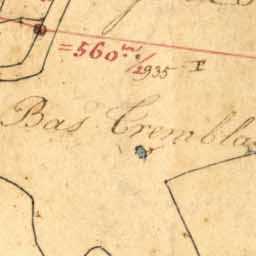 =560 m/1935
Bas Trembla